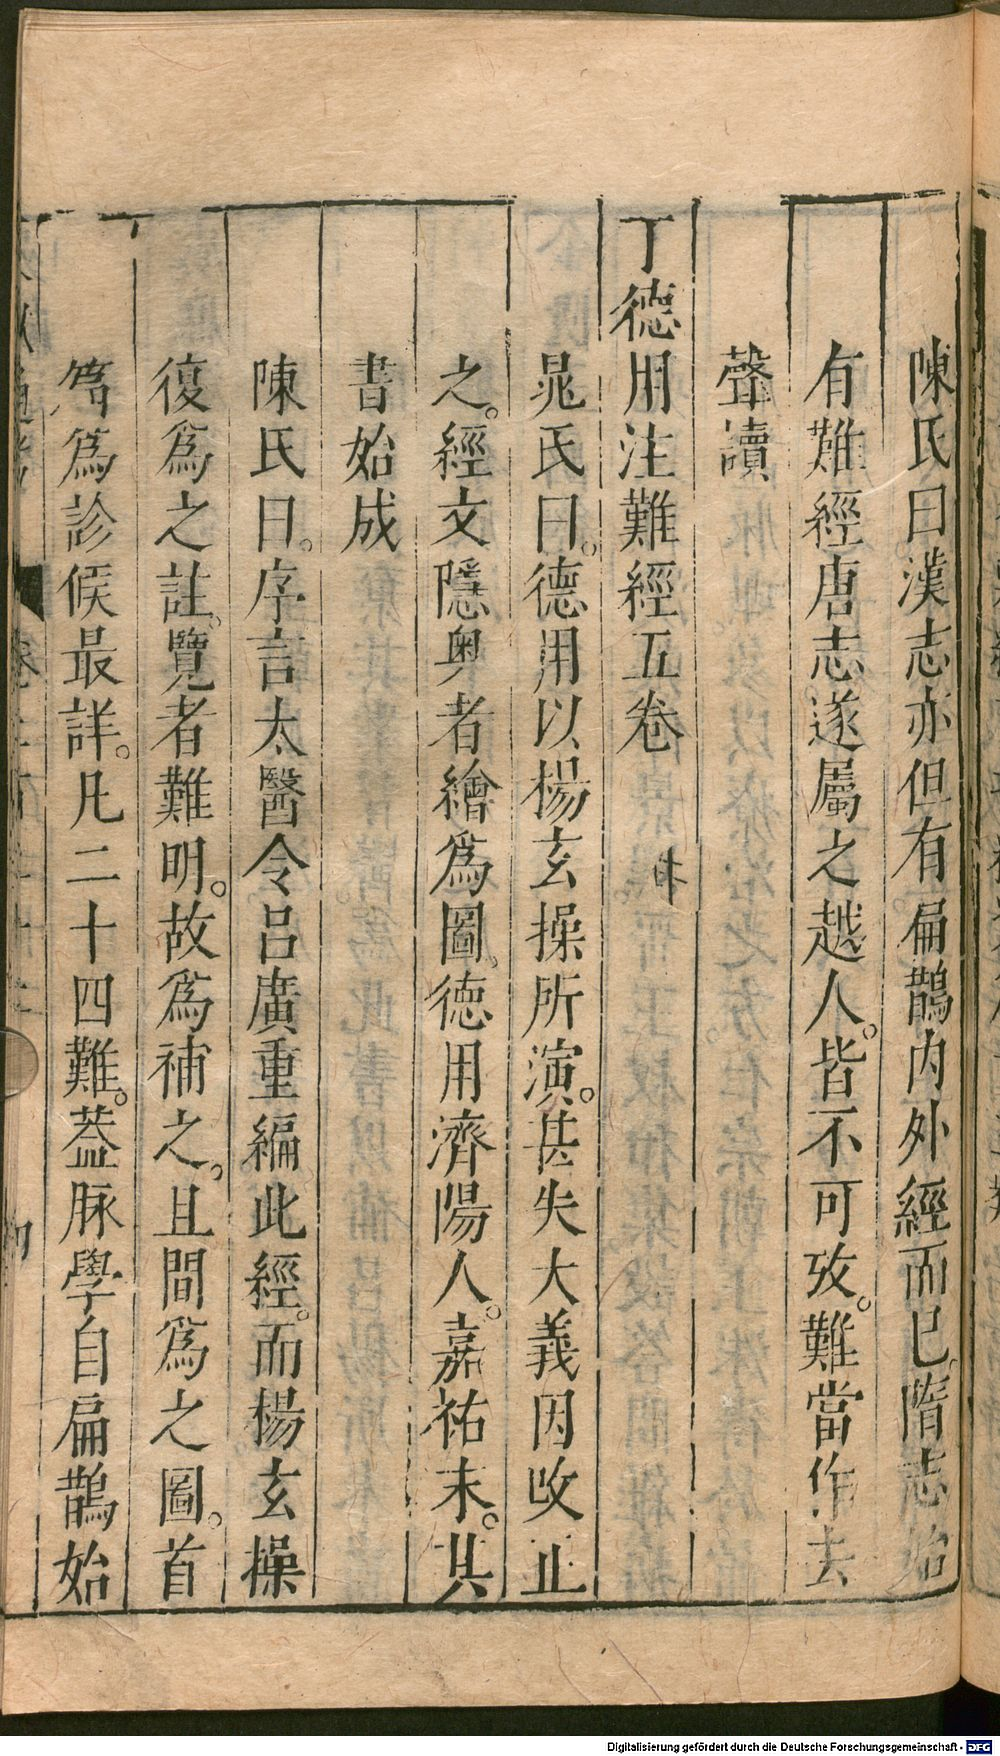 陳氏曰漢志亦但有扁鵲內外經而已。隋志始
有難經唐志遂屬之越人。皆不可攷。難當作去
聲讀
丁德用注難經五卷
晁氏曰。德用以楊玄操所演。甚失大義因改正
之。經文隱奧者繪爲圖。德用濟陽人。嘉祐末。其
書始成
陳氏曰。序言太醫令呂廣重編此經。而楊玄操
復爲之註。覽者難明。故爲補之。且間爲之圖。首
篇爲診候最詳。凡二十四難。葢脉學自扁鵲始
Digitalisierung gefördert durch die Deutsche Forschungsgemeinschaft - DFG